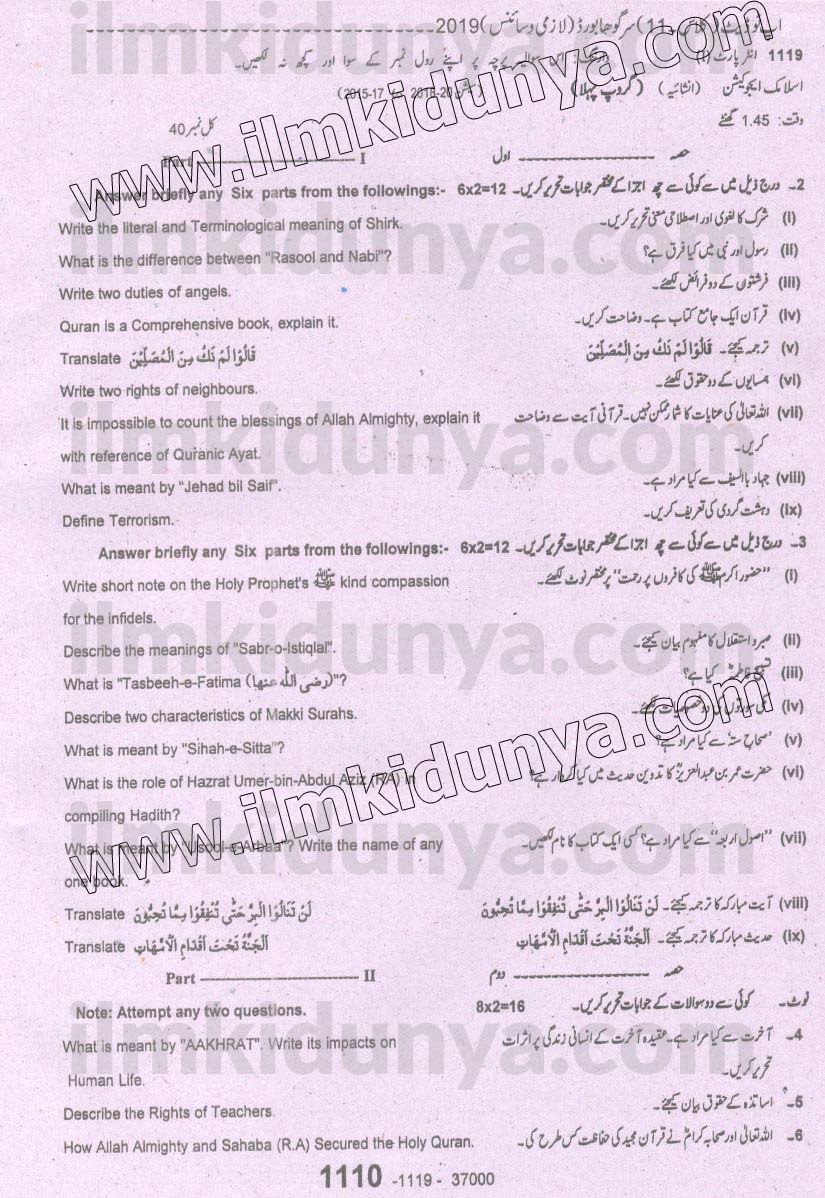 2019 (لازمی و سائنس) سرگودھا بورڈ (11
1119 انٹر پارٹ (I) وارننگ: اس سوالیہ پرچہ پر اپنے رول نمبر کے سوا اور کچھ نہ لکھیں۔
اسلامک ایجوکیشن (انشائیہ) (گروپ پہلا) (سیشن 20-2018 17-2015)
وقت: 1.45 گھنٹے کل نمبر 40
Part I حصہ اول
Answer briefly any Six parts from the followings:- 6x2=12 2۔ درج ذیل میں سے کوئی سے چھ اجزا کے مختصر جوابات تحریر کریں۔
Write the literal and Terminological meaning of Shirk. (i) شرک کا لغوی اور اصطلاحی معنی تحریر کریں۔
What is the difference between "Rasool and Nabi"? (ii) رسول اور نبی میں کیا فرق ہے؟
Write two duties of angels. (iii) فرشتوں کے دو فرائض لکھئے۔
Quran is a Comprehensive book, explain it. (iv) قرآن ایک جامع کتاب ہے۔ وضاحت کریں۔
Translate قَالُوْا لَمْ نَكُ مِنَ الْمُصَلِّيْنَ (v) ترجمہ کیجئے۔ قَالُوْا لَمْ نَكُ مِنَ الْمُصَلِّيْنَ
Write two rights of neighbours. (vi) ہمسایوں کے دو حقوق لکھئے۔
It is impossible to count the blessings of Allah Almighty, explain it (vii) اللہ تعالیٰ کی عنایات کا شمار ممکن نہیں۔ قرآنی آیت سے وضاحت
with reference of Quranic Ayat. کریں۔
What is meant by "Jehad bil Saif". (viii) جہاد بالسیف سے کیا مراد ہے۔
Define Terrorism. (ix) دہشت گردی کی تعریف کریں۔
Answer briefly any Six parts from the followings:- 6x2=12 3۔ درج ذیل میں سے کوئی سے چھ اجزا کے مختصر جوابات تحریر کریں۔
Write short note on the Holy Prophet's ﷺ kind compassion (i) "حضور اکرم ﷺ کی کافروں پر رحمت" پر مختصر نوٹ لکھئے۔
for the infidels.
Describe the meanings of "Sabr-o-Istiqlal". (ii) صبر و استقلال کا مفہوم بیان کیجئے۔
What is "Tasbeeh-e-Fatima (رضی اللہ عنها)"? (iii) تسبیح فاطمہؓ کیا ہے؟
Describe two characteristics of Makki Surahs. (iv) مکی سورتوں کی دو خصوصیات لکھئے۔
What is meant by "Sihah-e-Sitta"? (v) "صحاح ستہ" سے کیا مراد ہے؟
What is the role of Hazrat Umer-bin-Abdul Aziz (RA) in (vi) حضرت عمر بن عبدالعزیزؒ کا تدوین حدیث میں کیا کردار ہے؟
compiling Hadith?
What is meant by "Usool-e-Arbaa"? Write the name of any (vii) "اصول اربعہ" سے کیا مراد ہے؟ کسی ایک کتاب کا نام لکھیں۔
one book.
Translate لَنْ تَنَالُوا الْبِرَّ حَتّٰى تُنْفِقُوْا مِمَّا تُحِبُّوْنَ (viii) آیت مبارکہ کا ترجمہ کیجئے۔ لَنْ تَنَالُوا الْبِرَّ حَتّٰى تُنْفِقُوْا مِمَّا تُحِبُّوْنَ
Translate اَلْجَنَّةُ تَحْتَ اَقْدَامِ الْاُمَّهَاتِ (ix) حدیث مبارکہ کا ترجمہ کیجئے۔ اَلْجَنَّةُ تَحْتَ اَقْدَامِ الْاُمَّهَاتِ
Part II حصہ دوم
Note: Attempt any two questions. 8x2=16 نوٹ۔ کوئی سے دو سوالات کے جوابات تحریر کریں۔
What is meant by "AAKHRAT". Write its impacts on 4۔ آخرت سے کیا مراد ہے۔ عقیدہ آخرت کے انسانی زندگی پر اثرات
Human Life. تحریر کریں۔
Describe the Rights of Teachers. 5۔ اساتذہ کے حقوق بیان کیجئے۔
How Allah Almighty and Sahaba (R.A) Secured the Holy Quran. 6۔ اللہ تعالیٰ اور صحابہ کرامؓ نے قرآن مجید کی حفاظت کس طرح کی۔
1110 -1119 - 37000
www.ilmkidunya.com
www.ilmkidunya.com
ilmkidunya.com
ilmkidunya.com
ilmkidunya.com
ilmkidunya.com
ilmkidunya.com
ilmkidunya.com